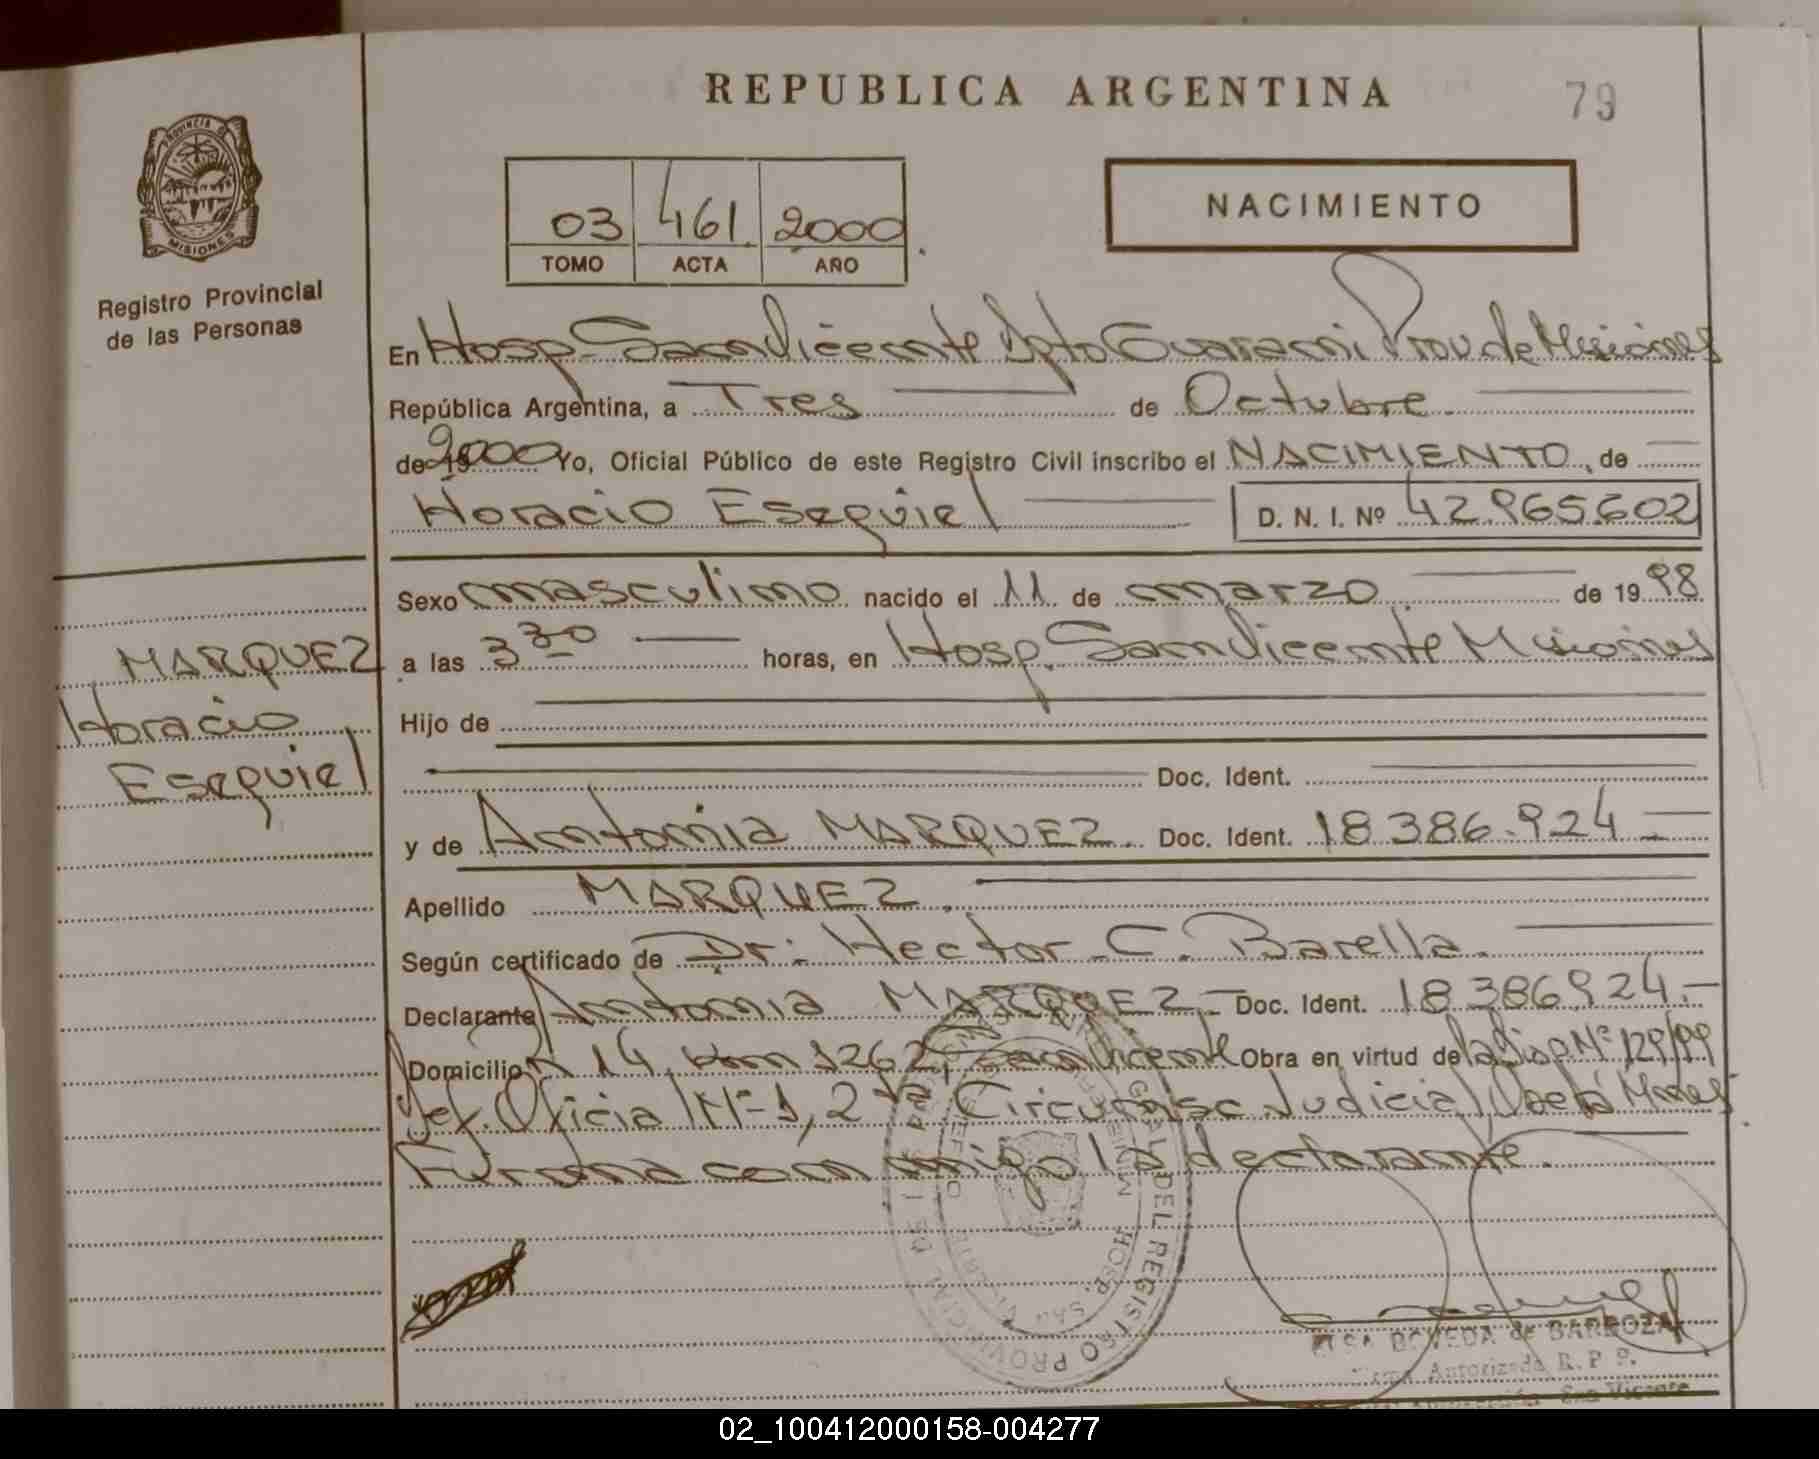 REPUBLICA ARGENTINA
79
PROVINCIA DE
MISIONES
Registro Provincial
de las Personas
03 461 2000
TOMO ACTA AÑO
NACIMIENTO
En Hosp. San Vicente Dpto Guarani Prov de Misiones
República Argentina, a Tres de Octubre
de 19 2000 Yo, Oficial Público de este Registro Civil inscribo el NACIMIENTO, de
Horacio Esequiel D. N. I. Nº 42.965.602
Sexo masculino nacido el 11 de marzo de 19 98
a las 3 30 horas, en Hosp. San Vicente Misiones
Hijo de
Doc. Ident.
y de Antonia MARQUEZ. Doc. Ident. 18.386.924
Apellido MARQUEZ.
Según certificado de Dr: Hector C. Barella.
Declarante Antonia MARQUEZ Doc. Ident. 18.386.924.
Domicilio R 14 km 1262, San Vicente Obra en virtud de la Disp Nº 129/99
Def. Oficial Nº 1, 2da Circunsc. Judicial Oberá Mnes
Firma conmigo la declarante.
MARQUEZ
Horacio
Esequiel
DEL REGISTRO PROVINCIAL DE LAS
HOSP. SAN VICENTE
BOVEDA de BARBOZA
Autorizada R. P. P.
San Vicente
02_100412000158-004277